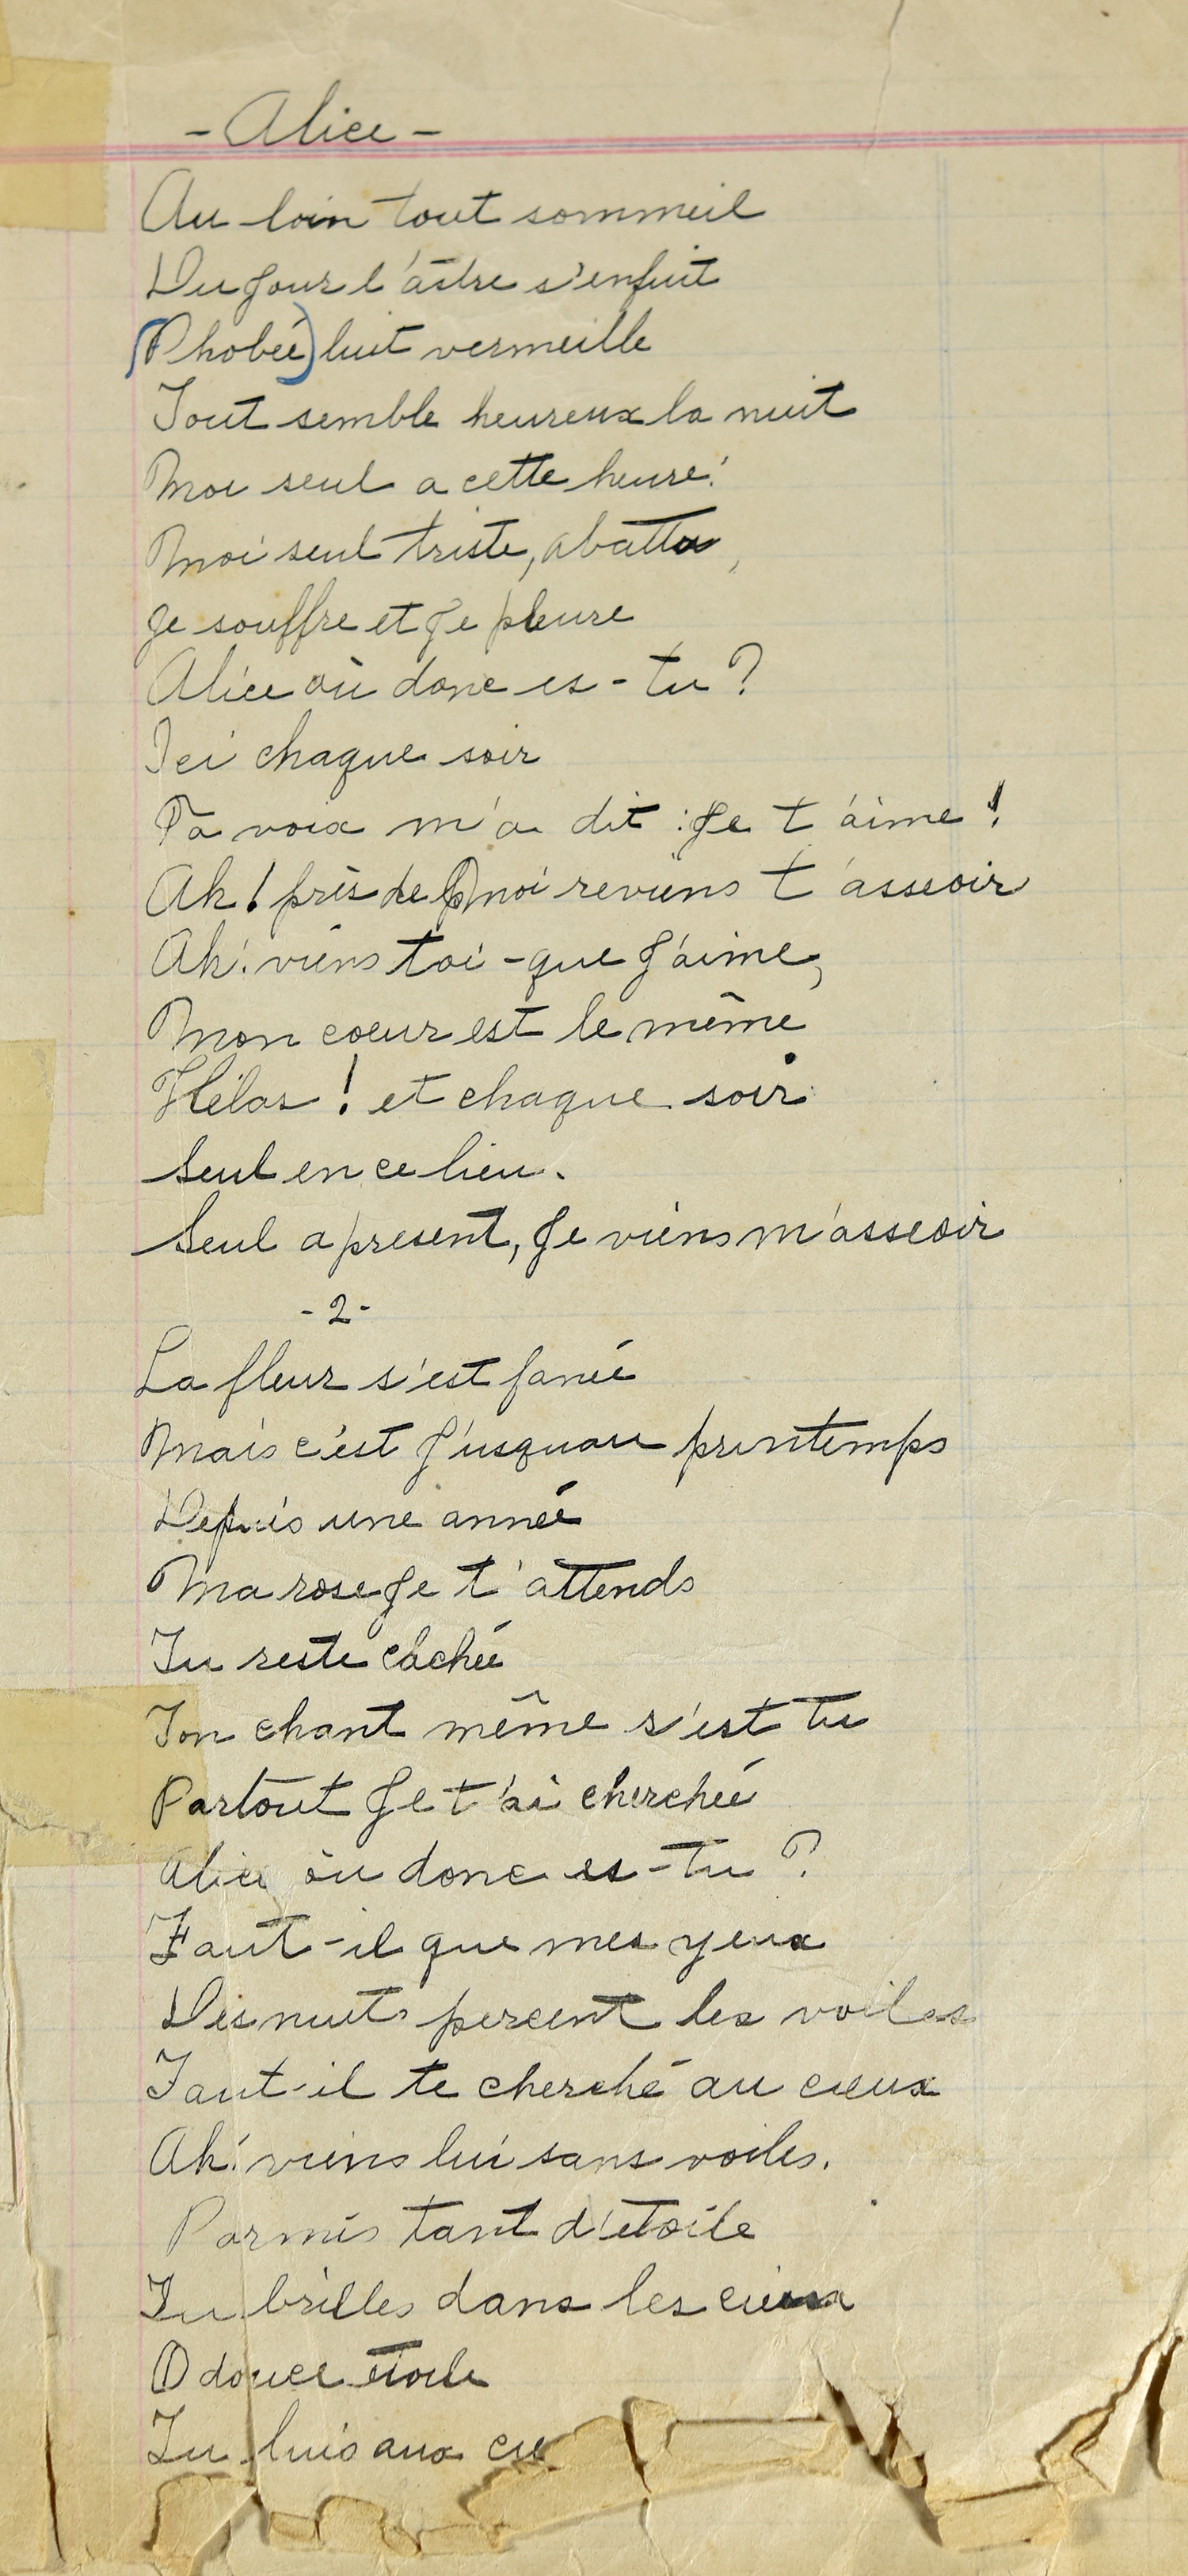 - Alice -
Au loin tout sommeil
Du jour l'âstre s'enfuit
(Phobée) luit vermeille
Tout semble heureux la nuit
Moi seul a cette heure!
Moi seul triste, abattu,
Je souffre et je pleure
Alice où donc es-tu ?
Ici chaque soir
Ta voix m'a dit : Je t'aime !
Ah ! près de moi reviens t'asseoir
Ah! viens toi - que j'aime,
Mon coeur est le même
Hélas ! et chaque soir
Seul en ce lieu.
Seul a present, Je viens m'asseoir
- 2 -
La fleur s'est fanée
Mais c'est j'usquau printemps
Depuis une année
Ma rose je t'attends
Tu reste caché
Ton chant même s'est tu
Partout je t'ai cherchée
Alice où donc es-tu ?
Faut-il que mes yeux
Des nuits percent les voiles
Faut-il te cherché au cieux
Ah! viens lui sans voiles.
Parmis tant d'étoile
Tu brilles dans les cieux
O douce étoile
Tu luis aux